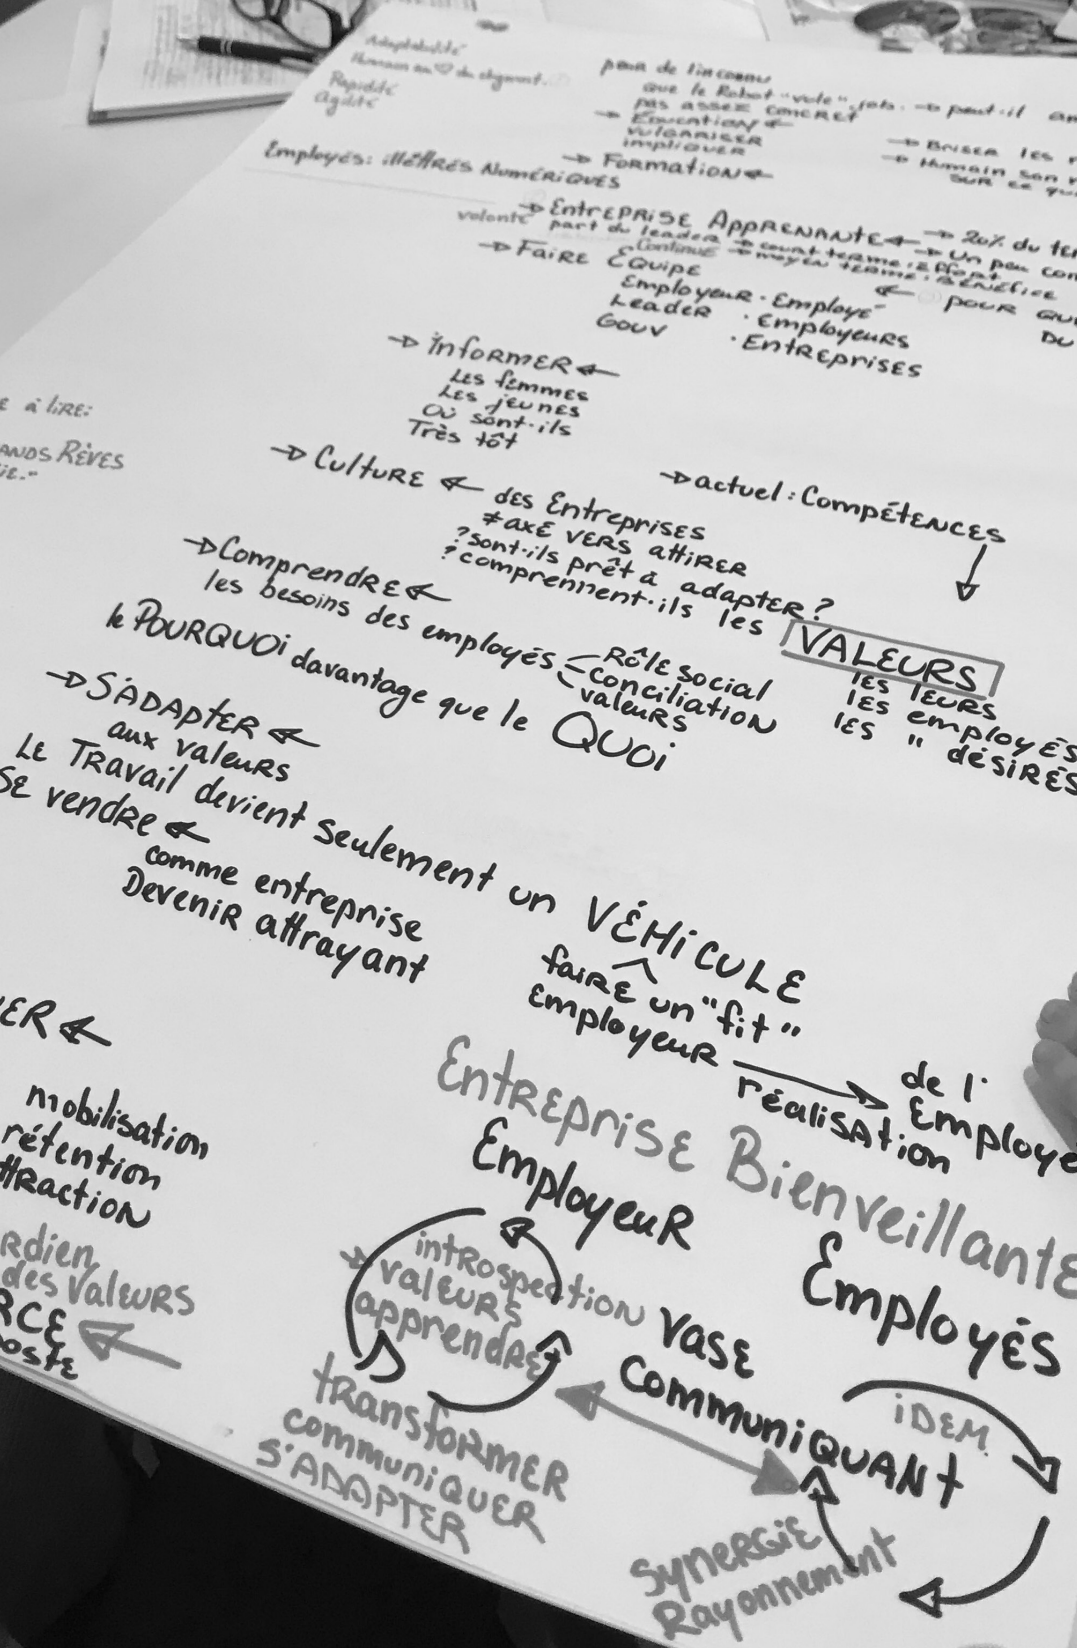 Adaptabilité
Humain au ♡ du changement.
Rapidité
Agilité
Employés: illéttrés Numériques
peur de l'inconnu
que le Robot "vole" jobs. → peut-il
pas assez concret
→ Éducation ←
vulgariser
impliquer
→ Formation ←
→ Briser les
→ Humain son
sur ce
→ Entreprise Apprenante ← → 20% du
volonté part du leader → court terme: Effort → Un peu
Continue → moyen terme: Bénéfice
← pour
DU
→ Faire Équipe
Employeur · Employé
Leader · Employeurs
Gouv · Entreprises
→ Informer ←
Les femmes
Les jeunes
Où sont-ils
Très tôt
à lire:
Rêves
→ Culture ← des Entreprises
≠ axé vers attirer
? sont-ils prêt à adapter?
? comprennent-ils les VALEURS
→ actuel: Compétences
les leurs
les employés
les " désirés
→ Comprendre ←
les besoins des employés
Rôle social
conciliation
valeurs
le POURQUOI davantage que le QUOI
→ S'ADAPTER ←
aux valeurs
Le Travail devient seulement un VÉHICULE
Se vendre ←
comme entreprise
Devenir attrayant
faire un "fit"
Employeur → de l'
réalisation
ER ←
mobilisation
rétention
des valeurs
Entreprise Bienveillante
Employeur
Employés
introspection
→ valeurs
apprendre
Vase
Communiquant
iDEM
transformer
communiquer
S'ADAPTER
Synergie
Rayonnement